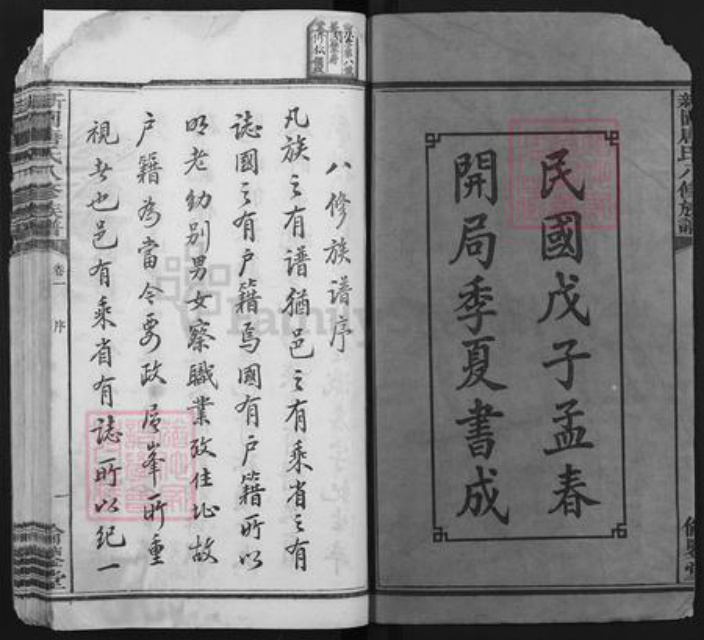 民國戊子孟春
開局季夏書成
八修族譜序
凡族之有譜猶邑之有乘省之有
誌國之有户籍焉國有户籍所以
明老幼别男女察職業攷住址故
户籍為當今要政層峯所重
視者也邑有乘省有誌所以紀一
卷一
序
一